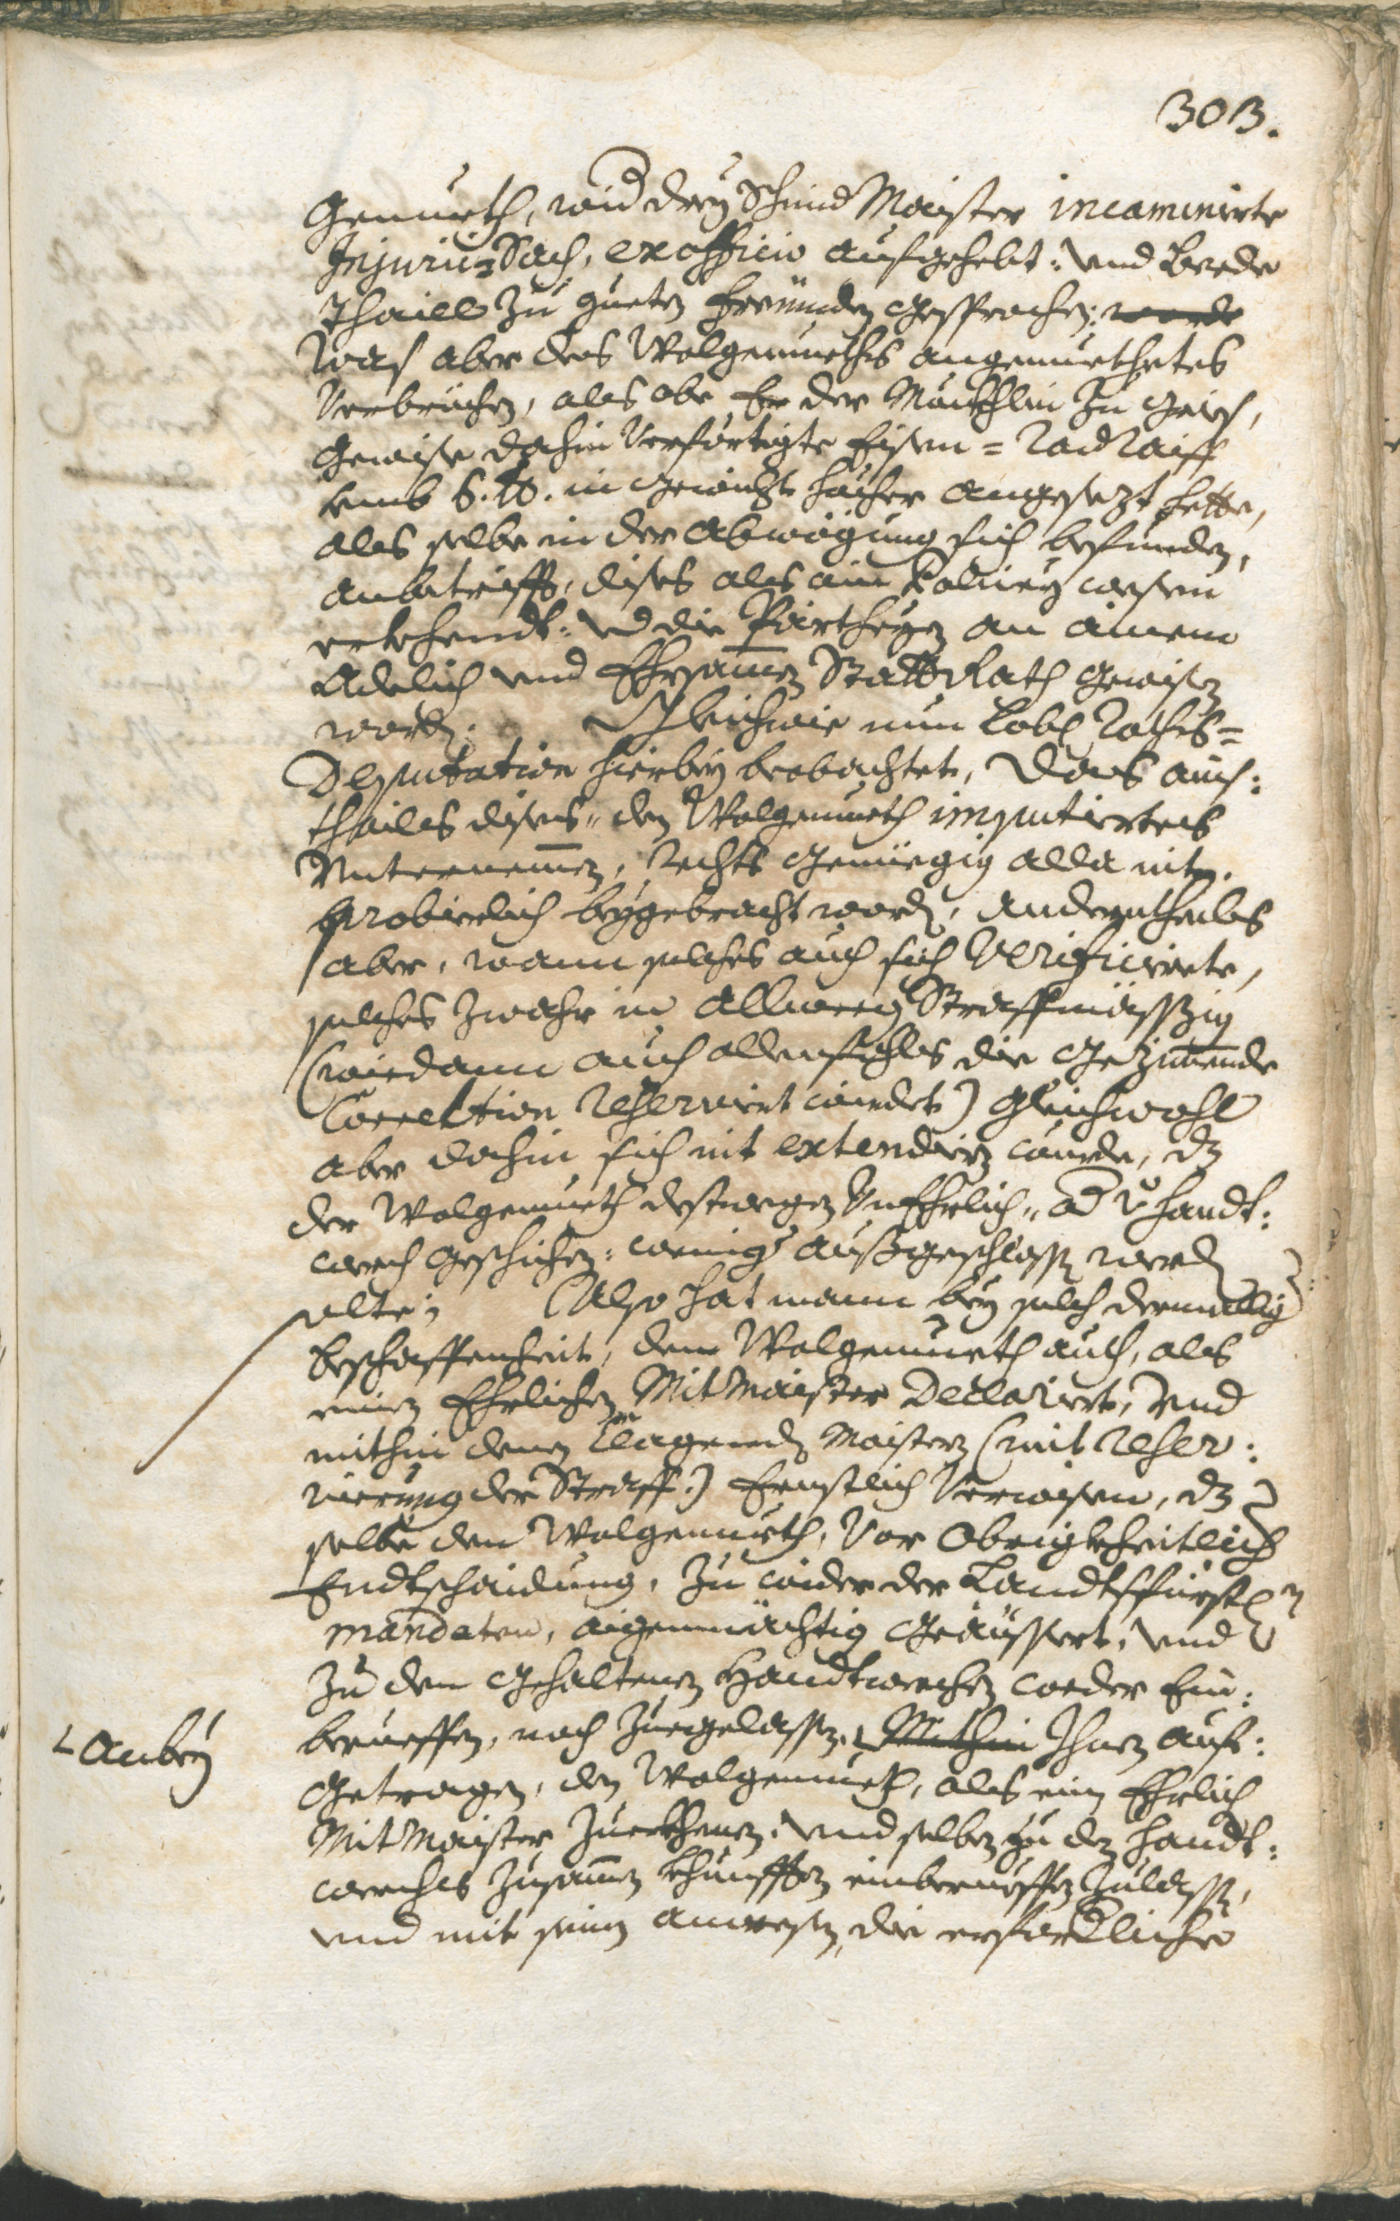 303.
Gemueth, wid drey Schmid Maister incaminirte
Injurien Sach, ex officio aufgehebt: und beede
Thaill zu gueten freünden gesprochen: worde
was aber des Wolgemueths angemuethetes
Verbrechen, als obe Er der Mänhlin zu Gries,
gewise dahin verfertigte Eisen = Rad Raiff
umb 6. lb. in Gewicht höcher angesezt hette,
als selbe in der Abwögung sich befunden,
anbetrifft, dises als ain Policey wesen
erkhendt: und die Partheyen an ainem
Adelich und Ehrsamen StattRath gewisen
worden. Gleichwie nun Lobl. Raths=
Deputation hierbey beobachtet, das ains:
thails dises, den Wolgemueth imputiertes
Unternemen, rechts genüegig alda nit
probierlich beygebracht worden, anderntheils
aber, wann solches auch sich verificierte,
solches zwahr in allweeg Straffmässig
(wie dann auch allenfahls die gezimende
Correction reserviert würdet) gleichwohl
aber dahin sich nit extendiren wurde, dz
der Wolgemueth destwegen UnEhrlich, od v. handt:
werch geschichen: weniger außgeschlossen werden
solte; Also hat mann bey solch dermallig
beschaffenheit, dem Wolgemueth auch, als
einen Ehrlichen MitMaister declarirt, und
mithin denen klagenden Maistern (mit reser:
vierung der Straff.) Ernstlich verwisen, dz
selbe den Wolgemueth, vor Obrigkheitlich
Endtschaidung, zu wider der Landtsfürstl.
mandaten, aigenmächtig geäussert, und
zu den gehaltenen Handtwerchen weder Ein:
berueffen, noch zuegelassen. Mithin Ihnen auf:
Anbey
getragen, den Wolgemueth, als ein Ehrlich
MitMaister zuerkhenen: und selben zu den handt:
werchs zusamen khunfften einberueffen zulassen,
und mit seinen anwesen, die erforderliche